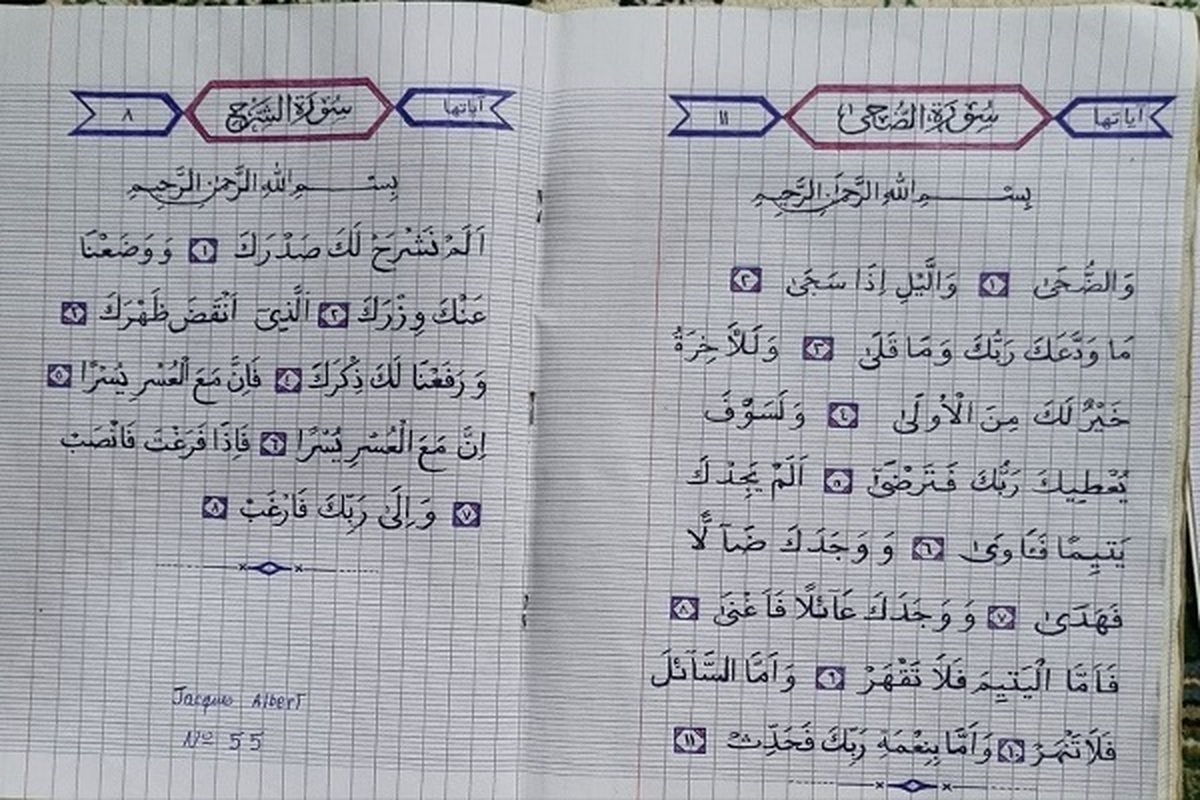 آياتها سُوْرَةُ الضُّحٰى ١١
بِسْمِ اللهِ الرَّحْمَنِ الرَّحِيمِ
وَالضُّحَىٰ ١ وَالَّيْلِ اِذَا سَجَىٰ ٢
مَا وَدَّعَكَ رَبُّكَ وَمَا قَلَىٰ ٣ وَلَلْاَخِرَةُ
خَيْرٌ لَكَ مِنَ الْاُولَىٰ ٤ وَلَسَوْفَ
يُعْطِيكَ رَبُّكَ فَتَرْضَىٰٓ ٥ اَلَمْ يَجِدْكَ
يَتِيمًا فَـَٔاوَىٰ ٦ وَوَجَدَكَ ضَآلًّا
فَهَدَىٰ ٧ وَوَجَدَكَ عَآئِلًا فَاَغْنَىٰ ٨
فَاَمَّا الْيَتِيمَ فَلَا تَقْهَرْ ٩ وَاَمَّا السَّآئِلَ
فَلَا تَنْهَرْ ١٠ وَاَمَّا بِنِعْمَةِ رَبِّكَ فَحَدِّثْ ١١
آياتها سُوْرَةُ الشَّرْحِ ٨
بِسْمِ اللهِ الرَّحْمَنِ الرَّحِيمِ
اَلَمْ نَشْرَحْ لَكَ صَدْرَكَ ١ وَوَضَعْنَا
عَنْكَ وِزْرَكَ ٢ اَلَّذِىٓ اَنْقَضَ ظَهْرَكَ ٣
وَرَفَعْنَا لَكَ ذِكْرَكَ ٤ فَاِنَّ مَعَ الْعُسْرِ يُسْرًا ٥
اِنَّ مَعَ الْعُسْرِ يُسْرًا ٦ فَاِذَا فَرَغْتَ فَانْصَبْ
٧ وَاِلَىٰ رَبِّكَ فَارْغَبْ ٨
Jacques Albert
Nº 55